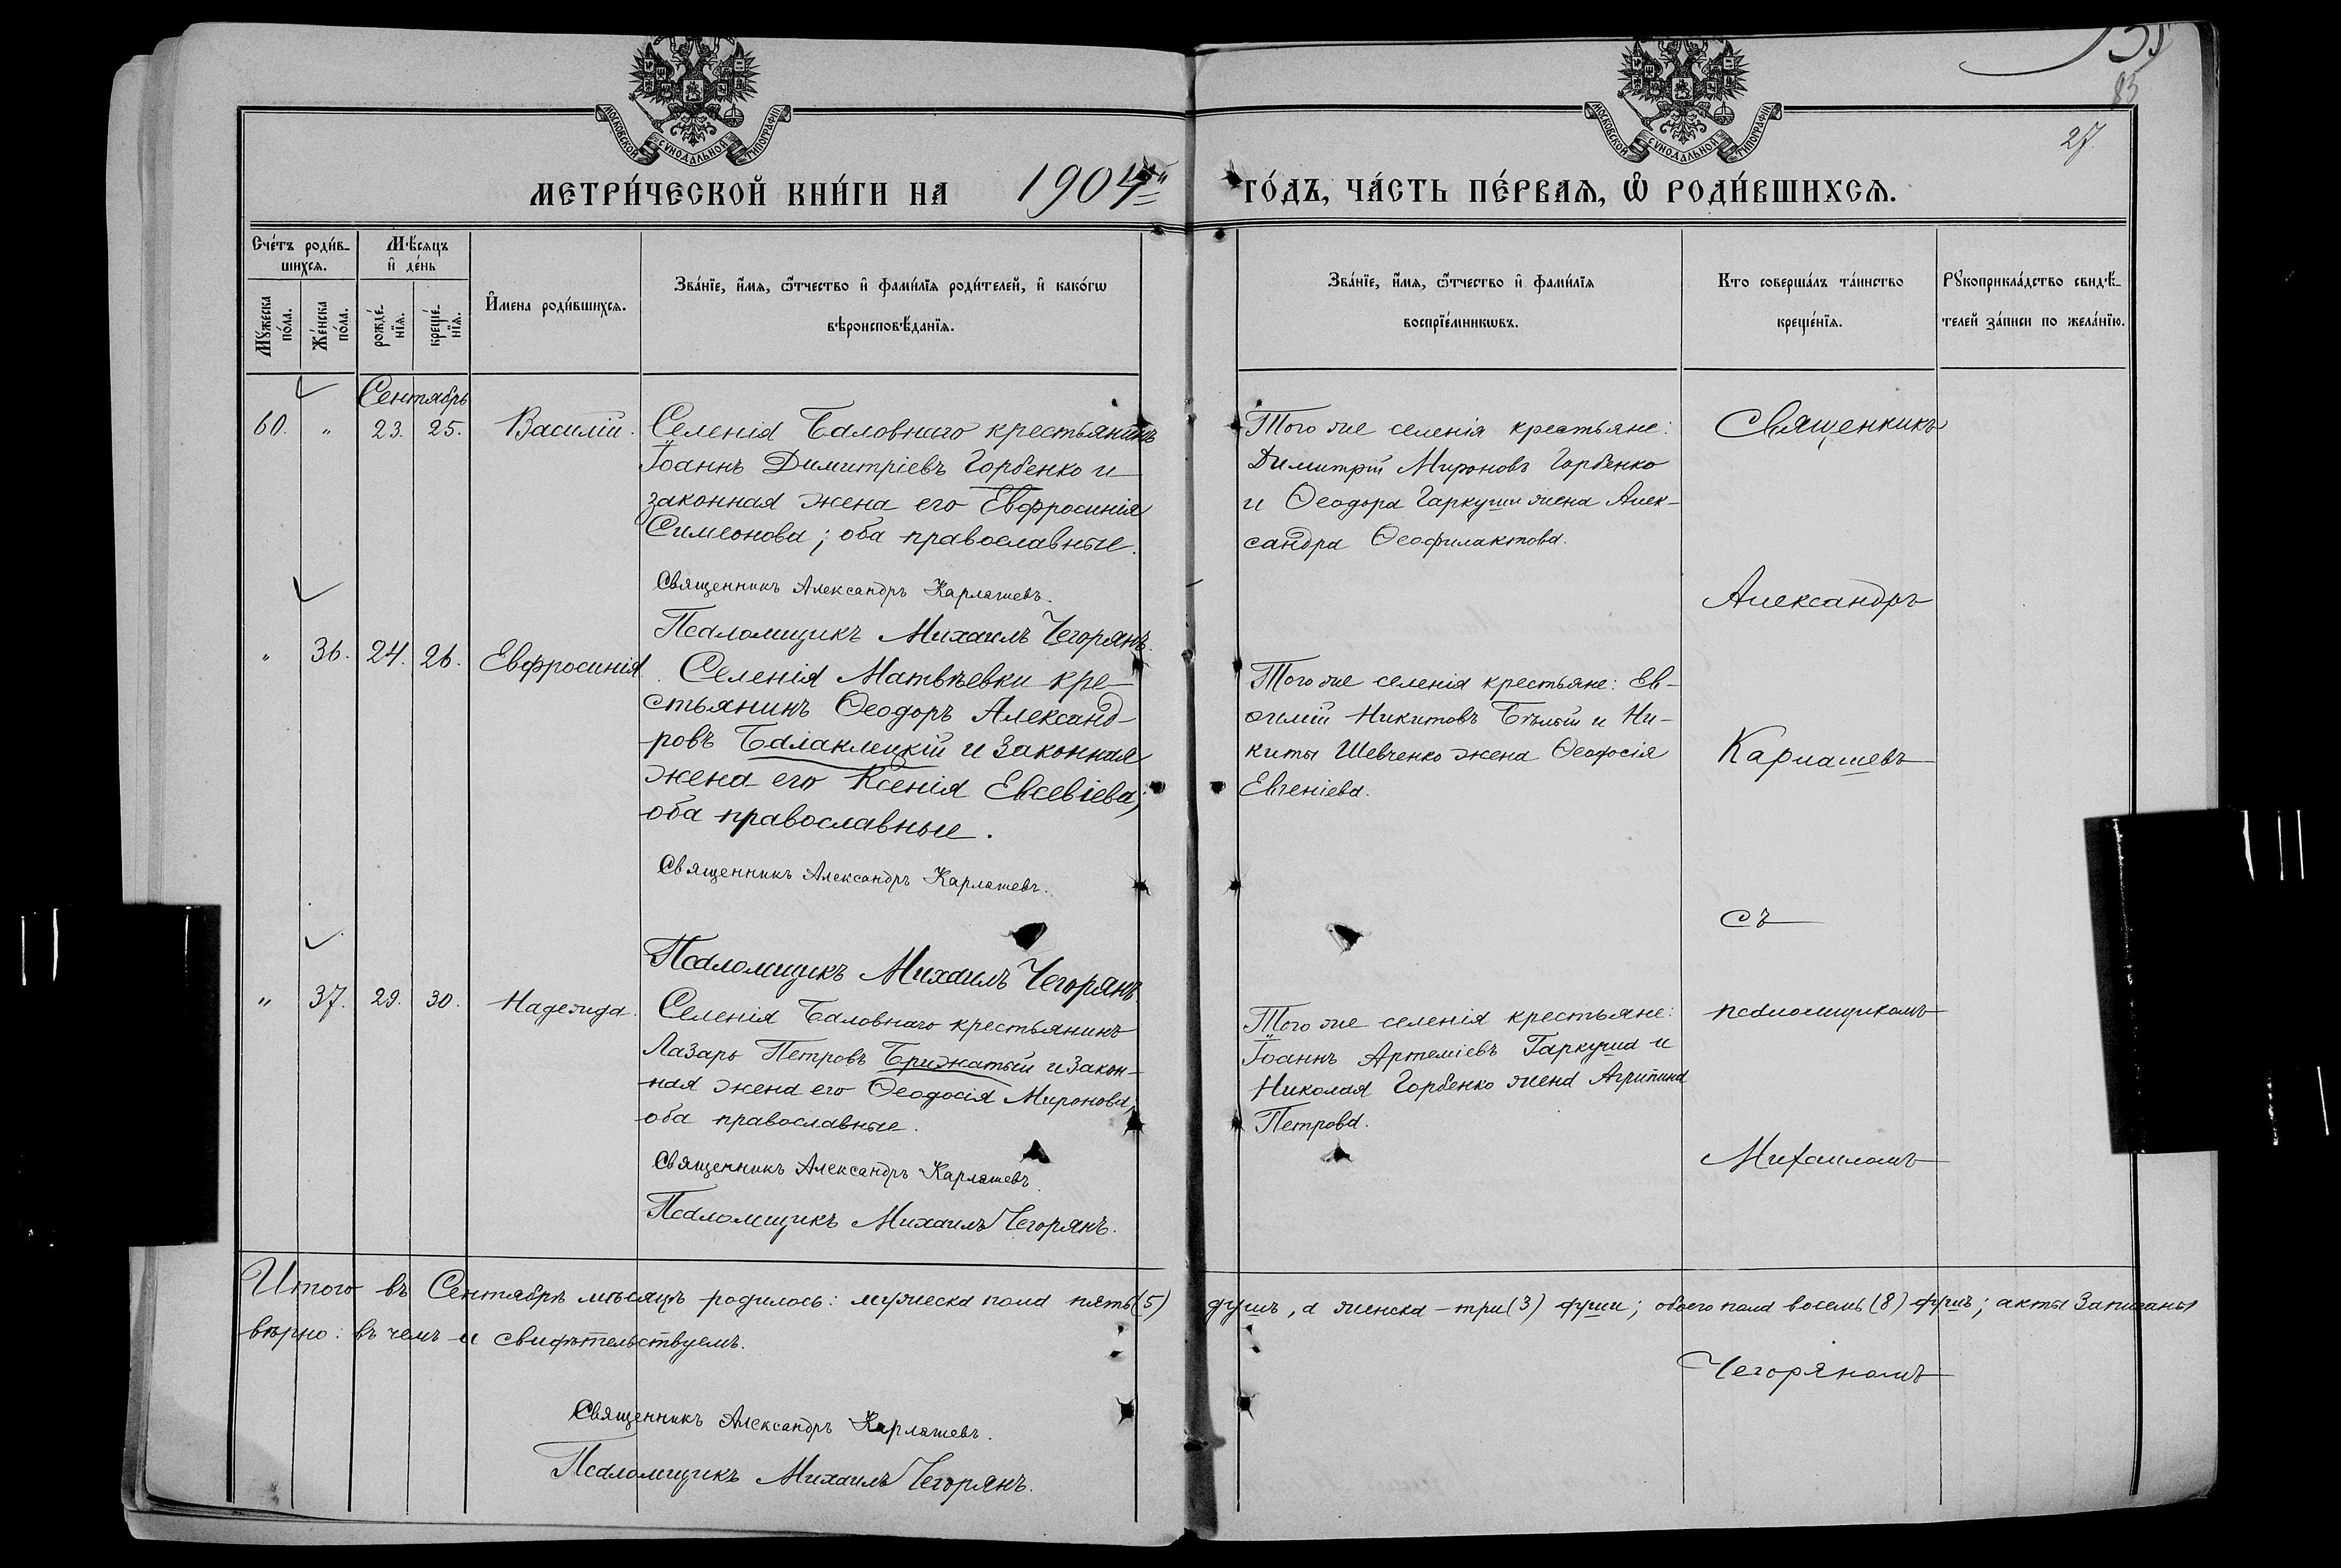 МОСКОВСКОЙ СѴНОДАЛЬНОЙ ТИПОГРАФІИ
МОСКОВСКОЙ СѴНОДАЛЬНОЙ ТИПОГРАФІИ
83
27.
МЕТРИ́ЧЕСКОЙ КНИ́ГИ НА 1904й ГО́ДЪ, ЧА́СТЬ ПЕ́РВАѦ, Ѽ РОДИ́ВШИХСѦ.
Сче́тъ роди́в-
шихсѧ.
Мѣ́сѧцъ
и҆ де́нь
Мꙋ́жеска
по́ла.
Же́нска
по́ла.
рожде́-
нїѧ.
креще́-
нїѧ.
И҆мена роди́вшихсѧ.
Зва́нїе, и҆́мѧ, ѻ҆́тчество и҆ фами́лїѧ роди́телей, и҆ како́гѡ
вѣроисповѣ́данїѧ.
Зва́нїе, и҆́мѧ, ѻ҆́тчество и҆ фами́лїѧ
воспрїе́мникѡвъ.
Кто соверша́лъ та́инство
креще́нїѧ.
Рꙋкоприкла́дство свидѣ́-
телей за́писи по жела́нїю.
Сентябрь
60. " 23. 25. Василій.
Селенія Баловнаго крестьянинъ
Іоаннъ Димитріевъ Горбенко и
законная жена его Евфросинія
Симеонова; оба православные.
Священникъ Александръ Карлашевъ.
Псаломщикъ Михаилъ Чегорянъ.
Того же селенія крестьяне:
Димитрій Мироновъ Горбенко
и Ѳеодора Гаркуши жена Алек-
сандра Ѳеофилактова.
" 36. 24. 26. Евфросинія.
Селенія Матвѣевки кре-
стьянинъ Ѳеодоръ Александ-
ровъ Балаклицкій и законная
жена его Ксенія Евсевіева;
оба православные.
Священникъ Александръ Карлашевъ.
Псаломщикъ Михаилъ Чегорянъ.
Того же селенія крестьяне: Ев-
ѳимій Никитовъ Бѣлый и Ни-
киты Шевченко жена Ѳеодосія
Евгеніева.
" 37. 29. 30. Надежда.
Селенія Баловнаго крестьянинъ
Лазарь Петровъ Брижатый и закон-
ная жена его Ѳеодосія Миронова,
оба православные.
Священникъ Александръ Карлашевъ.
Псаломщикъ Михаилъ Чегорянъ.
Того же селенія крестьяне:
Іоаннъ Артеміевъ Гаркуша и
Николая Горбенко жена Агрипина
Петрова.
Священникъ
Александръ
Карлашевъ
съ
псаломщикомъ
Михаиломъ
Чегоряномъ
Итого въ Сентябрѣ мѣсяцѣ родилось: мужеска пола пять (5) душъ, а женска – три (3) души; обоего пола восемь (8) душъ; акты записаны
вѣрно: въ чемъ и свидѣтельствуемъ.
Священникъ Александръ Карлашевъ.
Псаломщикъ Михаилъ Чегорянъ.